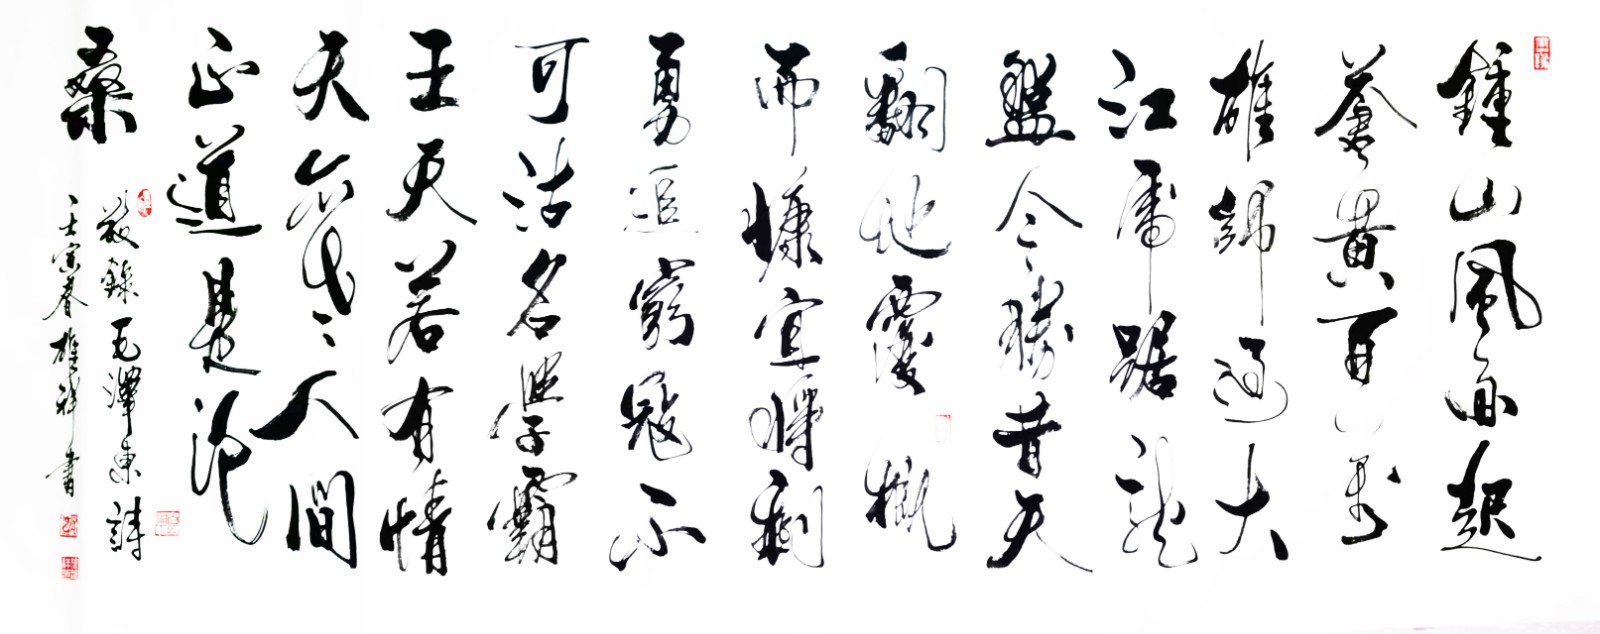 鍾山風雨起
蒼黃百萬
雄師過大
江虎踞龍
盤今勝昔天
翻地覆慨
而慷宜將剩
勇追窮寇不
可沽名學霸
王天若有情
天亦老人間
正道是滄
桑
敬錄毛澤東詩
壬寅春雄祥書